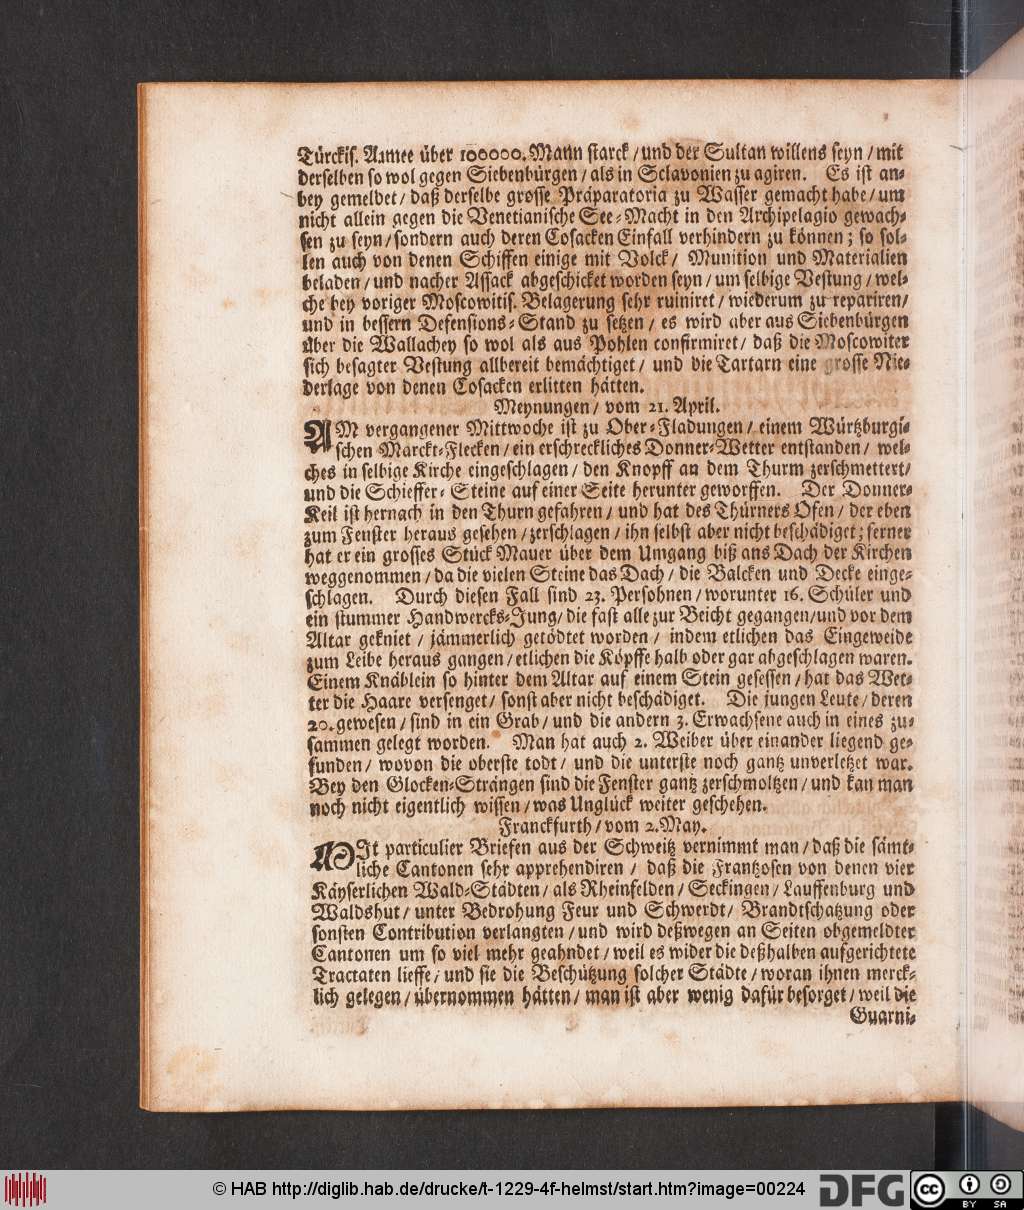 Türckis. Armee über 100000. Mann starck / und der Sultan willens seyn / mit
derselben so wol gegen Siebenbürgen / als in Sclavonien zu agiren. Es ist an-
bey gemeldet / daß derselbe grosse Præparatoria zu Wasser gemacht habe / um
nicht allein gegen die Venetianische See-Macht in den Archipelagio gewach-
sen zu seyn / sondern auch deren Cosacken Einfall verhindern zu können; so sol-
len auch von denen Schiffen einige mit Volck / Munition und Materialien
beladen / und nacher Assack abgeschicket worden seyn / um selbige Vestung / wel-
che bey voriger Moscowitis. Belagerung sehr ruiniret / wiederum zu repariren /
und in bessern Defensions-Stand zu setzen / es wird aber aus Siebenbürgen
über die Wallachey so wol als aus Pohlen confirmiret / daß die Moscowiter
sich besagter Vestung allbereit bemächtiget / und die Tartarn eine grosse Nie-
derlage von denen Cosacken erlitten hätten.
Meynungen / vom 21. April.
AM vergangener Mittwoche ist zu Ober-Fladungen / einem Würtzburgi-
schen Marckt-Flecken / ein erschreckliches Donner-Wetter entstanden / wel-
ches in selbige Kirche eingeschlagen / den Knopff an dem Thurm zerschmettert /
und die Schieffer-Steine auf einer Seite herunter geworffen. Der Donner-
Keil ist hernach in den Thurn gefahren / und hat des Thürners Ofen / der eben
zum Fenster heraus gesehen / zerschlagen / ihn selbst aber nicht beschädiget; ferner
hat er ein grosses Stück Mauer über dem Umgang biß ans Dach der Kirchen
weggenommen / da die vielen Steine das Dach / die Balcken und Decke einge-
schlagen. Durch diesen Fall sind 23. Persohnen / worunter 16. Schüler und
ein stummer Handwercks-Jung / die fast alle zur Beicht gegangen / und vor dem
Altar gekniet / jämmerlich getödtet worden / indem etlichen das Eingeweide
zum Leibe heraus gangen / etlichen die Köpffe halb oder gar abgeschlagen waren.
Einem Knäblein so hinter dem Altar auf einem Stein gesessen / hat das Wet-
ter die Haare versenget / sonst aber nicht beschädiget. Die jungen Leute / deren
20. gewesen / sind in ein Grab / und die andern 3. Erwachsene auch in eines zu-
sammen gelegt worden. Man hat auch 2. Weiber über einander liegend ge-
funden / wovon die oberste todt / und die unterste noch gantz unverletzet war.
Bey den Glocken-Strängen sind die Fenster gantz zerschmoltzen / und kan man
noch nicht eigentlich wissen / was Unglück weiter geschehen.
Franckfurth / vom 2. May.
MIt particulier Briefen aus der Schweitz vernimmt man / daß die sämt-
liche Cantonen sehr apprehendiren / daß die Frantzosen von denen vier
Käyserlichen Wald-Städten / als Rheinfelden / Seckingen / Lauffenburg und
Waldshut / unter Bedrohung Feur und Schwerdt / Brandtschatzung oder
sonsten Contribution verlangten / und wird deßwegen an Seiten obgemeldter
Cantonen um so viel mehr geahndet / weil es wider die deßhalben aufgerichtete
Tractaten lieffe / und sie die Beschützung solcher Städte / woran ihnen merck-
lich gelegen / übernommen hätten / man ist aber wenig dafür besorget / weil die
Guarni-
© HAB http://diglib.hab.de/drucke/t-1229-4f-helmst/start.htm?image=00224
DFG
cc
BY SA